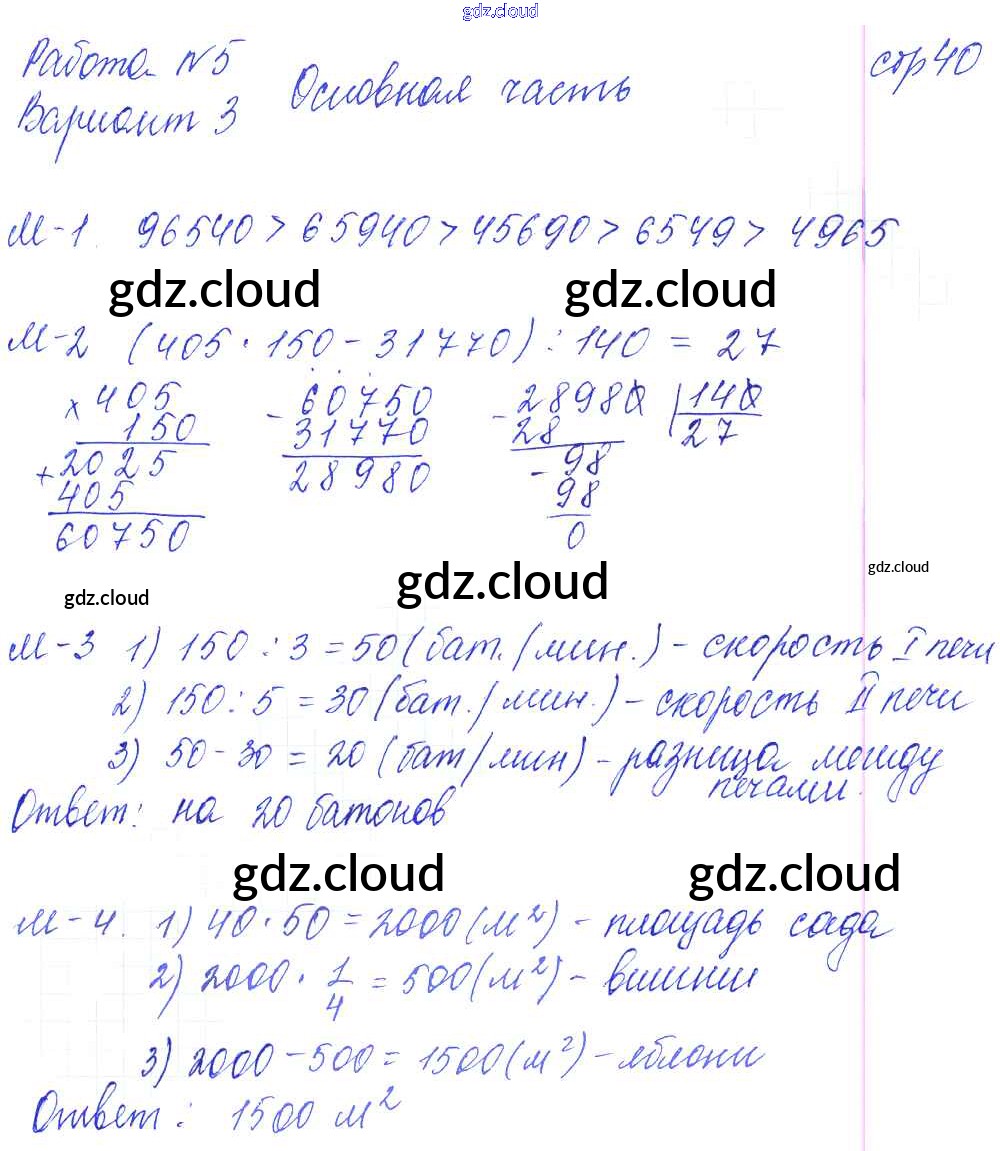 gdz.cloud
Работа №5 стр 40
Вариант 3 Основная часть
М-1. 96540 > 65940 > 45690 > 6549 > 4965
gdz.cloud gdz.cloud
М-2 (405 · 150 - 31770) : 140 = 27
× 405 - 60750 - 28980 | 140
150 31770 28 27
+ 2025 28980 - 98
405 98
60750 0
gdz.cloud gdz.cloud gdz.cloud
М-3 1) 150 : 3 = 50 (бат./мин.) - скорость I печи
2) 150 : 5 = 30 (бат./мин.) - скорость II печи
3) 50 - 30 = 20 (бат/мин) - разница между
печами.
Ответ: на 20 батонов
gdz.cloud gdz.cloud
М-4. 1) 40 · 50 = 2000 (м²) - площадь сада
2) 2000 · 1/4 = 500 (м²) - вишни
3) 2000 - 500 = 1500 (м²) - яблони
Ответ: 1500 м²